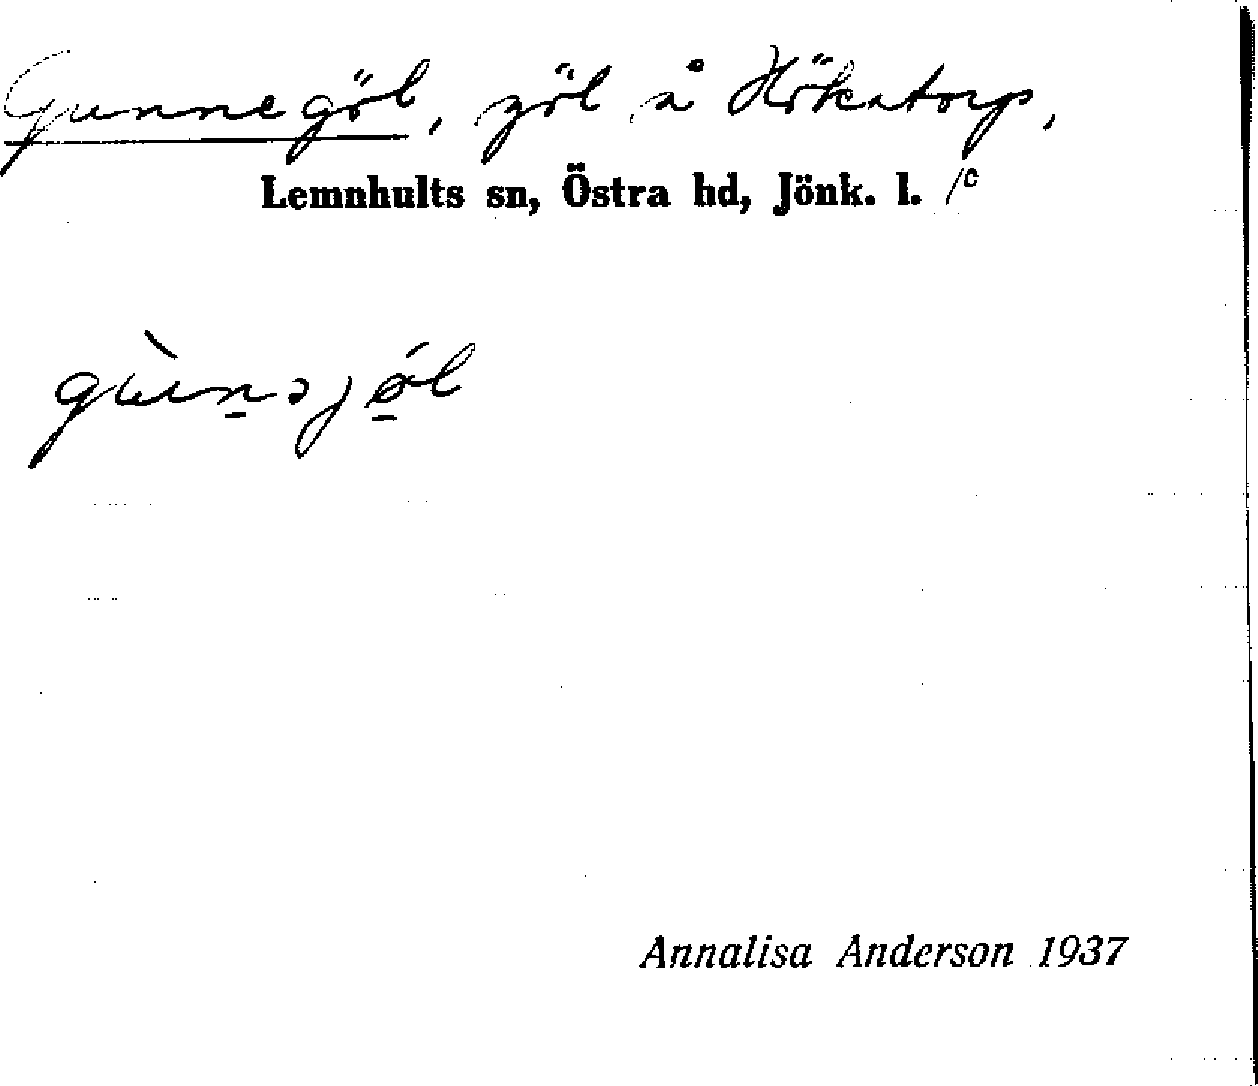 Gunnegöl, göl å Hökatorp,
Lemnhults sn, Östra hd, Jönk. l. /c
gùn̲əjǿ̲l
Annalisa Anderson 1937